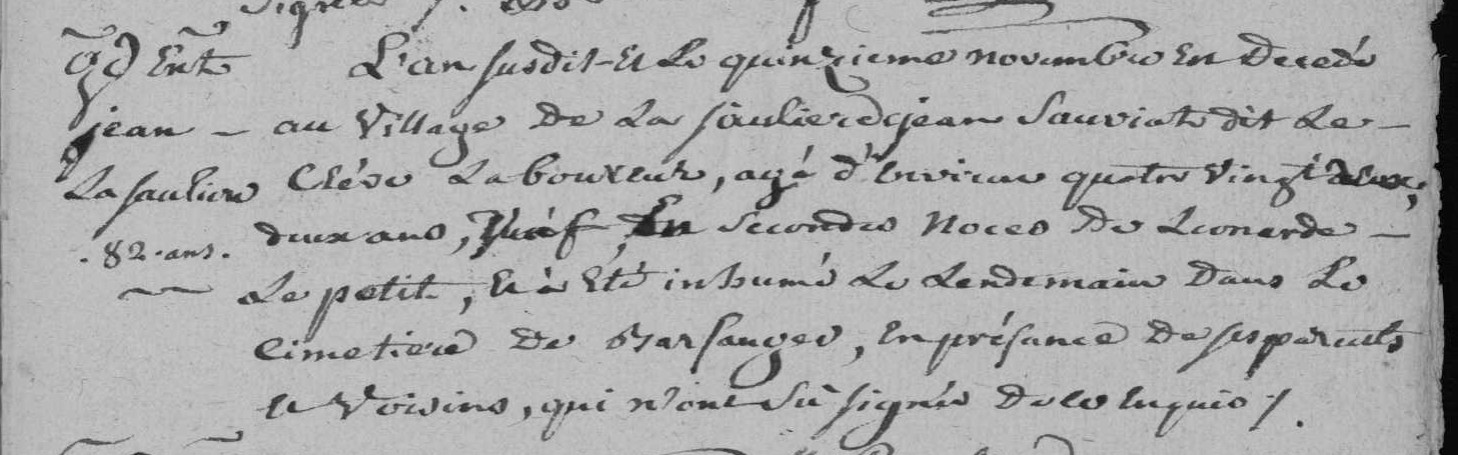 signer
Ent L'an susdit Et Le quinzieme novembre Est Decedé
jean – au Village De La sauliere jean Sauviat dit Le –
La sauliere Cléde Laboureur, agé d'Environ quatre Vingt deux,
deux ans, Veuf, En secondes Noces De Leonarde –
. 82 . ans .
Le petit, Et à Eté inhumé Le Lendemain Dans Le
Cimetiere De Barsanges, En présance De ses parents
Et Voisins, qui n'ont sû signér De ce Enquis /.